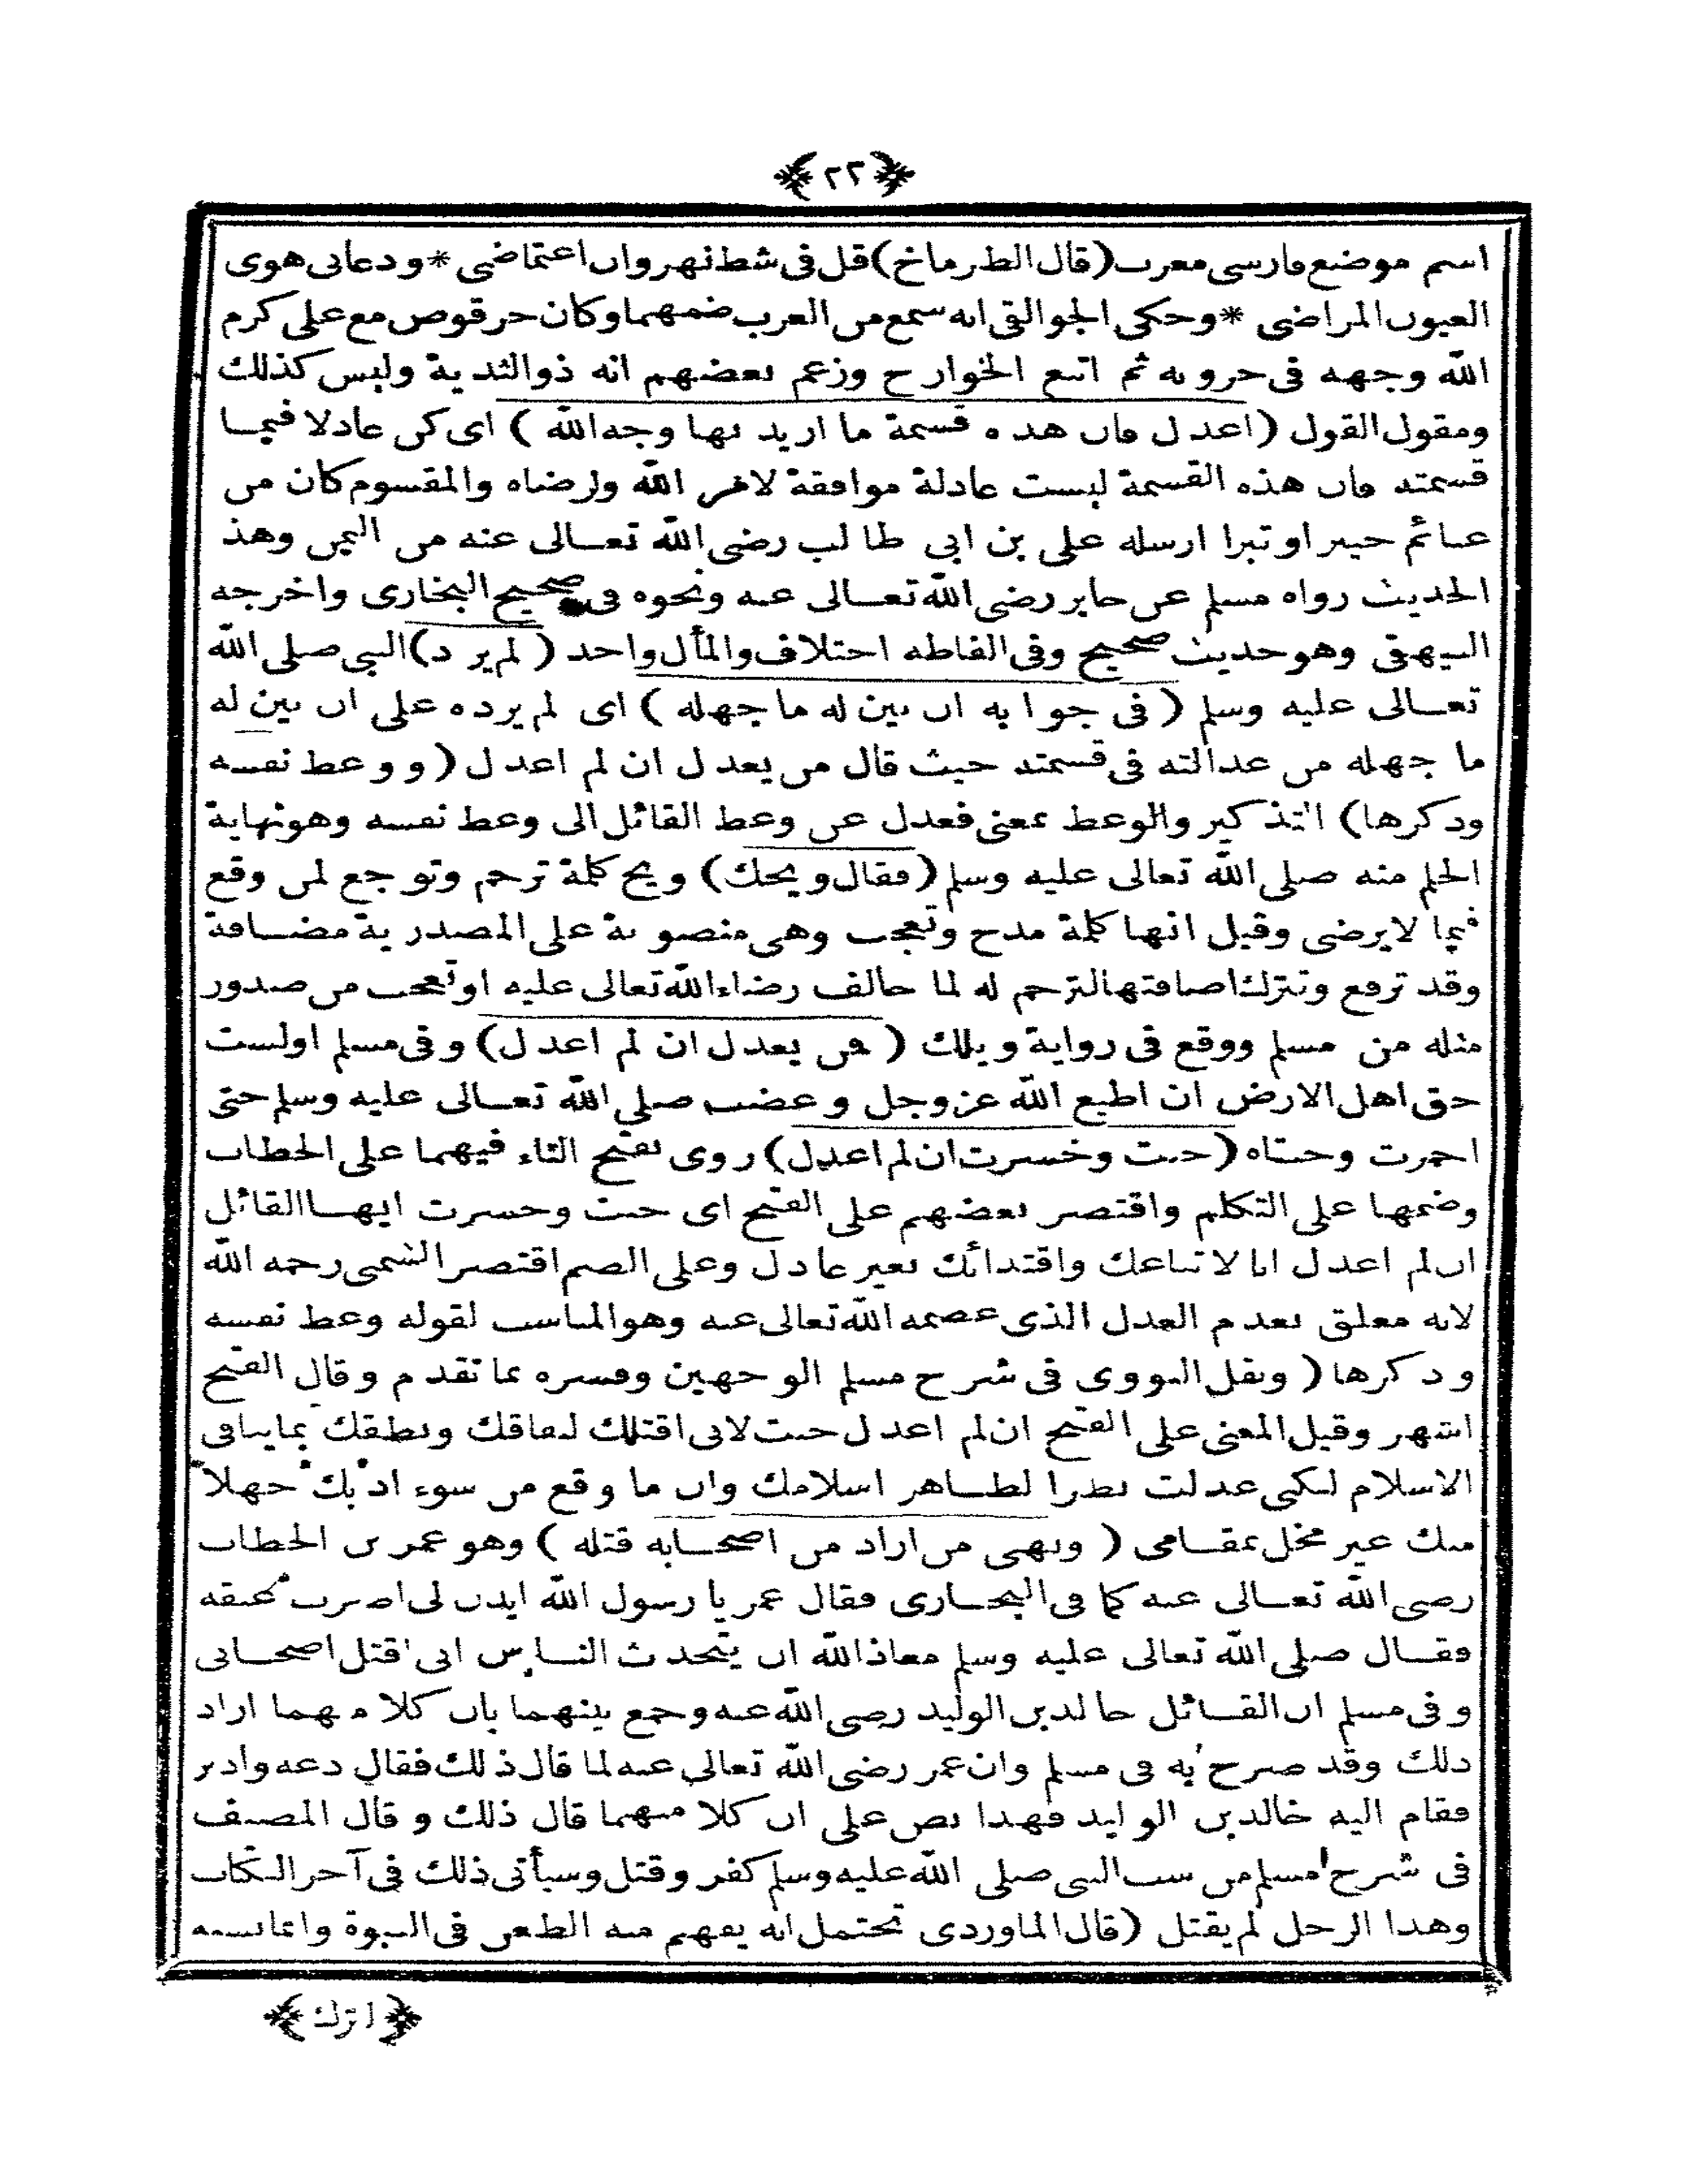 ﴿٢٢﴾
اسم موضع فارسى معرب (قال الطرماخ) قل فى شط نهروان اعتماضى * ودعانى هوى
العيون المراضى * وحكى الجوالقى انه سمع من العرب ضمهما وكان حرقوص مع على كرم
الله وجهه فى حروبه ثم اتبع الخوارج وزعم بعضهم انه ذوالثدية وليس كذلك
ومقول القول (اعدل فان هذه قسمة ما اريد بها وجه الله) اى كن عادلا فيما
قسمته فان هذه القسمة ليست عادلة موافقة لامر الله ولرضاه والمقسوم كان من
غنائم حيبر او تبرا ارسله على بن ابى طالب رضى الله تعالى عنه من اليمن وهذ
الحديث رواه مسلم عن جابر رضى الله تعالى عنه ونحوه فى صحيح البخارى واخرجه
البيهقى وهو حديث صحيح وفى الفاظه اختلاف والمأل واحد (لم يرد) النبى صلى الله
تعالى عليه وسلم (فى جوابه ان بين له ما جهله) اى لم يرده على ان بين له
ما جهله من عدالته فى قسمته حيث قال من يعدل ان لم اعدل (ووعظ نفسه
وذكرها) التذكير والوعظ بمعنى فعدل عن وعظ القائل الى وعظ نفسه وهو نهاية
الحلم منه صلى الله تعالى عليه وسلم (فقال ويحك) ويح كلمة ترحم وتوجع لمن وقع
فيما لا يرضى وقيل انها كلمة مدح وتعجب وهى منصوبة على المصدرية مضافة
وقد ترفع وتترك اضافتها لترحم له لما خالف رضاء الله تعالى عليه او تعجب من صدور
مثله من مسلم ووقع فى رواية ويلك (فمن يعدل ان لم اعدل) وفى مسلم اولست
حق اهل الارض ان اطيع الله عز وجل وغضب صلى الله تعالى عليه وسلم حتى
احمرت وجنتاه (خبت وخسرت ان لم اعدل) روى بفتح التاء فيهما على الخطاب
وضمها على التكلم واقتصر بعضهم على الفتح اى خبت وخسرت ايها القائل
ان لم اعدل انا لاتباعك واقتدائك بغير عادل وعلى الضم اقتصر الشمنى رحمه الله
لانه معلق بعدم العدل الذى عصمه الله تعالى عنه وهو المناسب لقوله وعظ نفسه
وذكرها (ونقل النووى فى شرح مسلم الوجهين وفسره بما تقدم وقال الفتح
اشهر وقيل المعنى على الفتح ان لم اعدل خبت لانى اقتلك لنفاقك ونطقك بما ينافى
الاسلام لكنى عدلت نظرا لظاهر اسلامك وان ما وقع من سوء ادبك جهلا
منك غير مخل بمقامى (ونهى من اراد من اصحابه قتله) وهو عمر بن الخطاب
رضى الله تعالى عنه كما فى البخارى فقال عمر يا رسول الله ايذن لى اضرب عنقه
فقال صلى الله تعالى عليه وسلم معاذ الله ان يتحدث الناس انى اقتل اصحابى
وفى مسلم ان القائل خالد بن الوليد رضى الله عنه وجمع بينهما بان كلا منهما اراد
ذلك وقد صرح به فى مسلم وان عمر رضى الله تعالى عنه لما قال ذلك فقال دعه وادبر
فقام اليه خالد بن الوليد فهذا نص على ان كلا منهما قال ذلك وقال المصنف
فى شرح مسلم من سب النبى صلى الله عليه وسلم كفر وقتل وسيأتى ذلك فى آخر الكتاب
وهذا الرجل لم يقتل (قال الماوردى تحتمل انه يفهم منه الطعن فى النبوة وانما نسبه
﴿لترك﴾